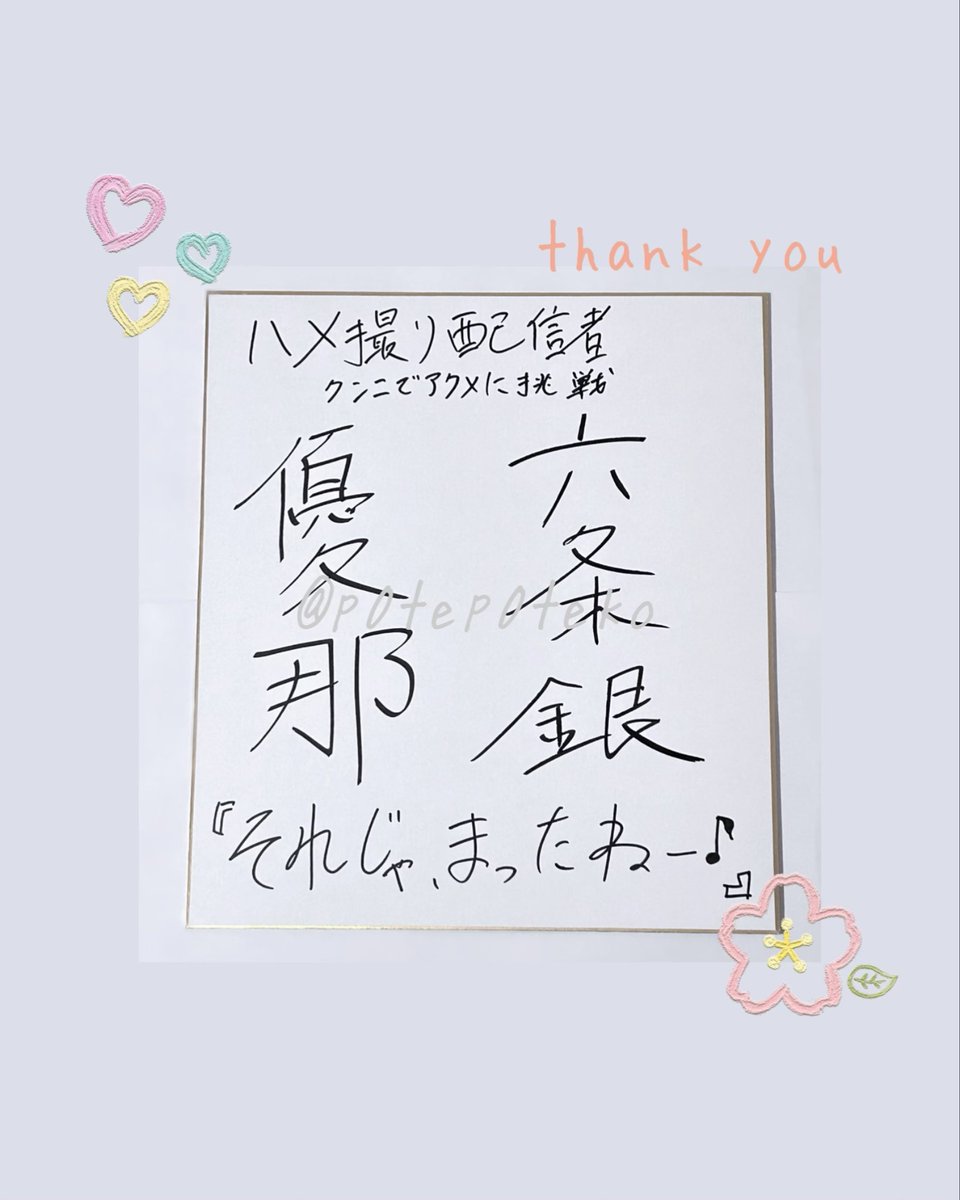 thank you
ハメ撮り配信者
クンニでアクメに挑戦
六条銀
優那
@p0tep0teko
『それじゃ、まったねー♪』